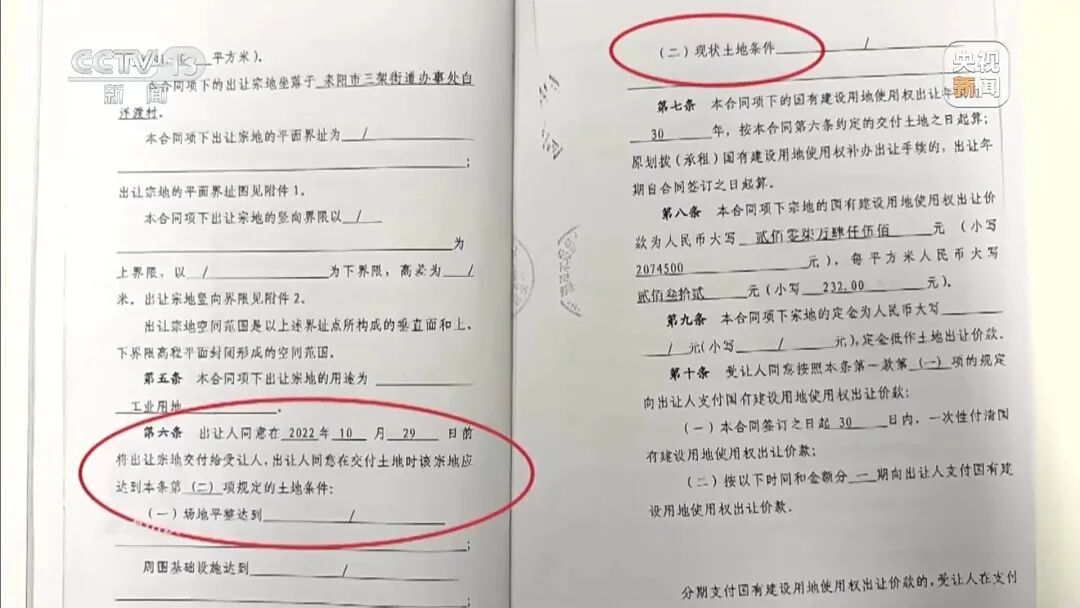 CCTV 13
新闻
央视
新闻
平方米)。
合同项下的出让宗地坐落于 耒阳市三架街道办事处白
洋渡村.
本合同项下出让宗地的平面界址为 /
;
出让宗地的平面界址图见附件1。
本合同项下出让宗地的竖向界限以 /
为
上界限，以 / 为下界限，高差为 /
米。出让宗地竖向界限见附件2。
出让宗地空间范围是以上述界址点所构成的垂直面和上、
下界限高程平面封闭形成的空间范围。
第五条 本合同项下出让宗地的用途为
工业用地 。
第六条 出让人同意在 2022年 10 月 29 日前
将出让宗地交付给受让人，出让人同意在交付土地时该宗地应
达到本条第 (二) 项规定的土地条件：
(一)场地平整达到 /
;
周围基础设施达到 /
(二)现状土地条件 /
第七条 本合同项下的国有建设用地使用权出让年
30 年，按本合同第六条约定的交付土地之日起算；
原划拨(承租)国有建设用地使用权补办出让手续的，出让年
期自合同签订之日起算。
第八条 本合同项下宗地的国有建设用地使用权出让价
款为人民币大写 贰佰零柒万肆仟伍佰 元 (小写
2074500 元)，每平方米人民币大写
贰佰叁拾贰 元(小写 232.00 元)。
第九条 本合同项下宗地的定金为人民币大写
/ 元(小写 / 元)，定金抵作土地出让价款。
第十条 受让人同意按照本条第一款第 (一) 项的规定
向出让人支付国有建设用地使用权出让价款：
(一)本合同签订之日起 30 日内，一次性付清国
有建设用地使用权出让价款；
(二)按以下时间和金额分 一 期向出让人支付国有建
设用地使用权出让价款.
分期支付国有建设用地使用权出让价款的，受让人在支付